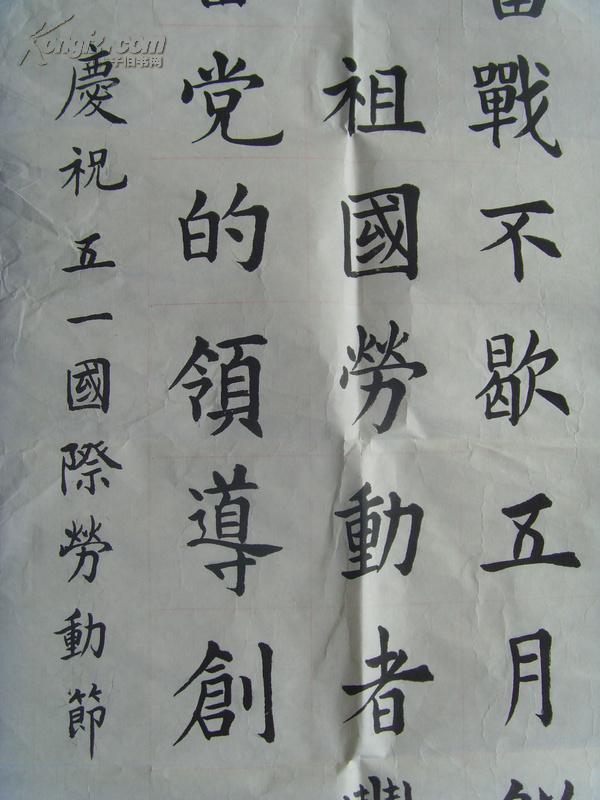 戰不歇五月
祖國勞動者
党的領導創
慶祝五一國際勞動節
Kongfz.com
孔子旧书网